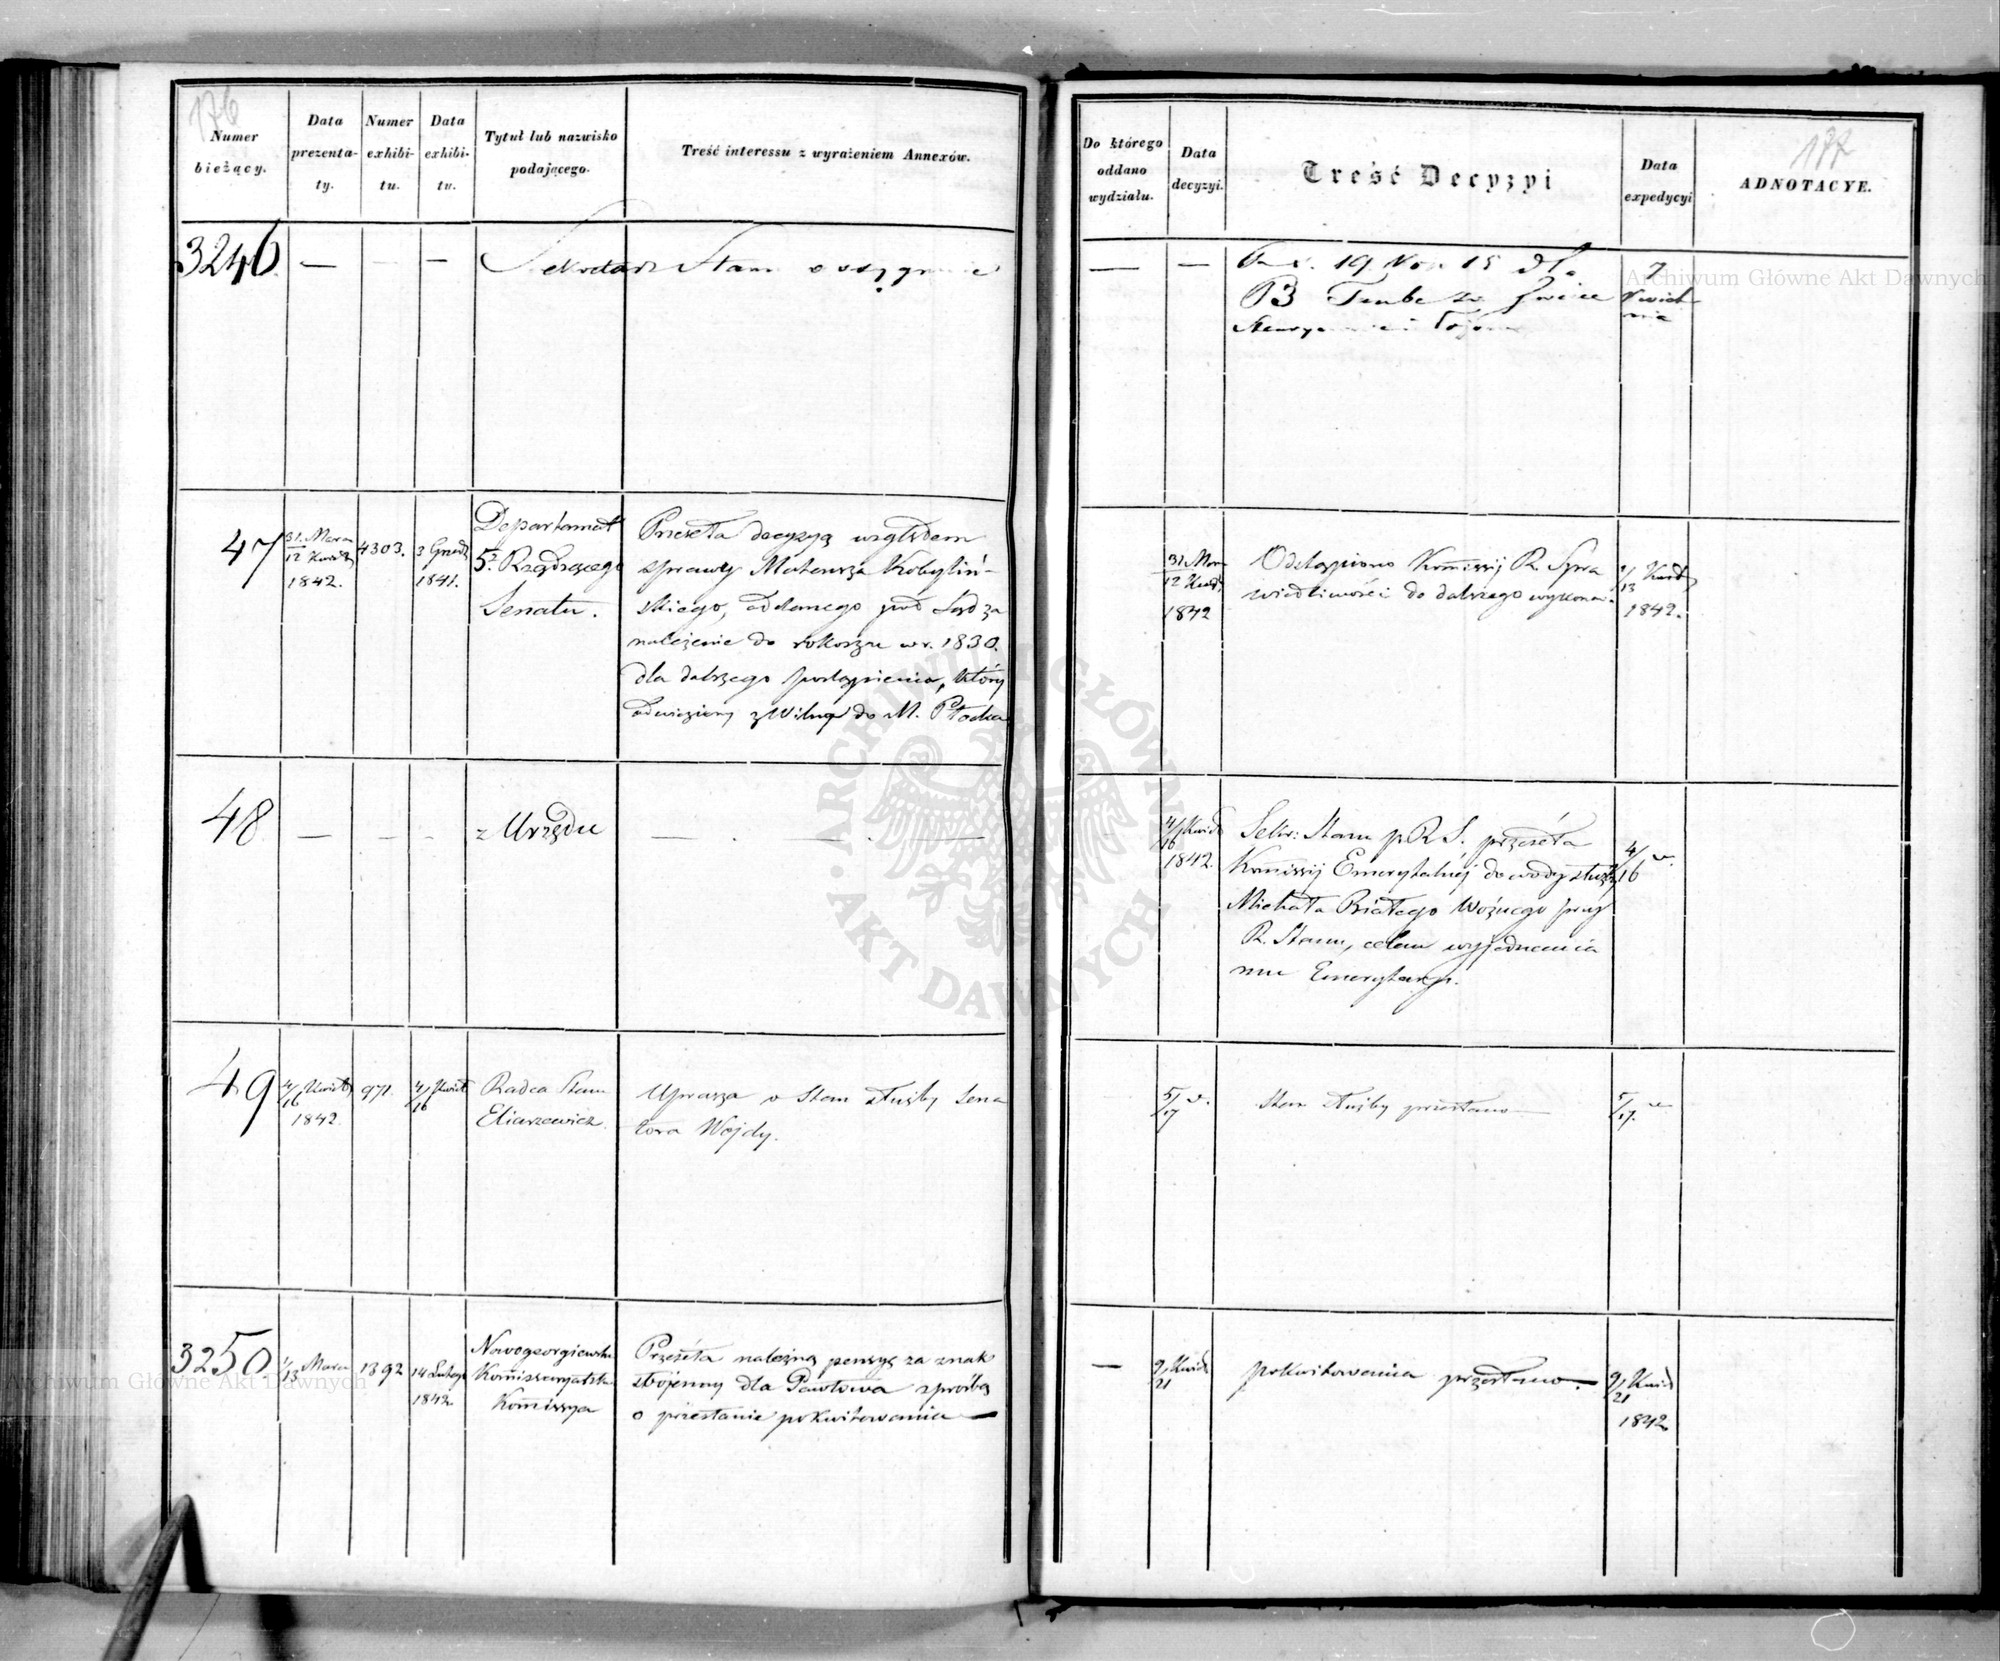 176
Numer bieżący.
Data prezenta-ty.
Numer exhibi-tu.
Data exhibi-tu.
Tytuł lub nazwisko podającego.
Treść interessu z wyrażeniem Annexów.
3246 — — —
Sekretarz Stanu
47
31. Marca
12 Kwiet
1842.
4303.
3 Grud
1841.
Departament
5. Rządzącego
Senatu.
Przeseła decyzyą względem
sprawy Mateusza Kobyliń-
skiego, oddanego pod Sąd za
należenie do rokoszu w r. 1830.
dla dalszego postąpienia, który
odwieziony z Wilna do M. Płocka
48 — — —
z Urzędu
49
4/16 Kwiet
1842.
971.
4/16 Kwiet
Radca Stanu
Eliaszewicz
Uprasza o Stan służby Sena
tora Wojdy.
3250
1/13 Marca
1392
14 Lutego
1842.
Nowogeorgiewska
Kommissaryatska
Kommissya
Przeseła należną pensyę za znak
wojenny dla Pawłowa z prośbą
o przesłanie pokwitowania —
177
Do którego oddano wydziału.
Data decyzyi.
Treść Decyzyi
Data expedycyi
ADNOTACYE.
— —
19 15
7
Kwiet-
nia
31. Mar
12 Kwiet
1842
Odstąpiono Kommissyi R. Spra
wiedliwości do dalszego wykonan.
1/13 Kwiet
1842.
4/16 Kwiet
1842.
Sekr: Stanu p R S. przeseła
Kommissyi Emerytalnej dowody służby
Michała Białego Woźnego przy
R. Stanu, celem wyjednania
mu Emerytury.
4/16 v.
5/17 v.
Stan służby przesłano —
5/17. v
—
9/21 Kwiet
pokwitowania przesłano. —
9/21 Kwiet
1842
Archiwum Główne Akt Dawnych
Archiwum Główne Akt Dawnych
ARCHIWUM GŁÓWNE • AKT DAWNYCH •